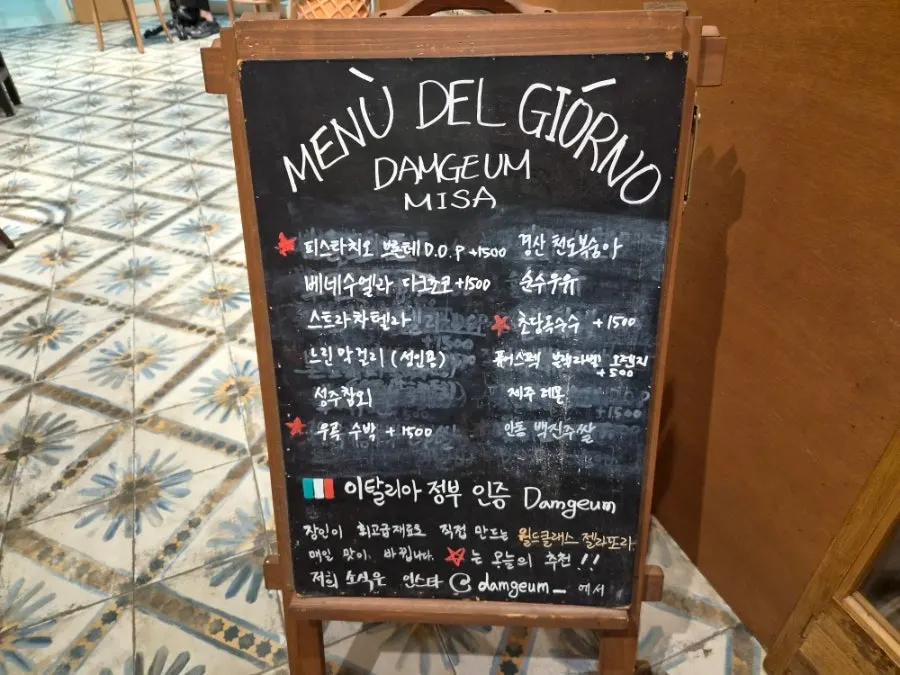 MENÙ DEL GIÓRNO
DAMGEUM
MISA
피스타치오 브론테 D.O.P +1500
경산 천도복숭아
베네수엘라 다크초코 +1500
순수우유
스트라차텔라
초당옥수수 +1500
느린막걸리 (성인용)
퓨어스펙 블랙라벨 오렌지
+500
성주참외
제주 레몬
우곡 수박 +1500
안동 백진주쌀
이탈리아 정부 인증 Damgeum
장인이 최고급재료로 직접 만드는 월드클래스 젤라또라
매일 맛이 바뀝니다. ☆는 오늘의 추천!!
저희 소식은 인스타 @damgeum_ 에서